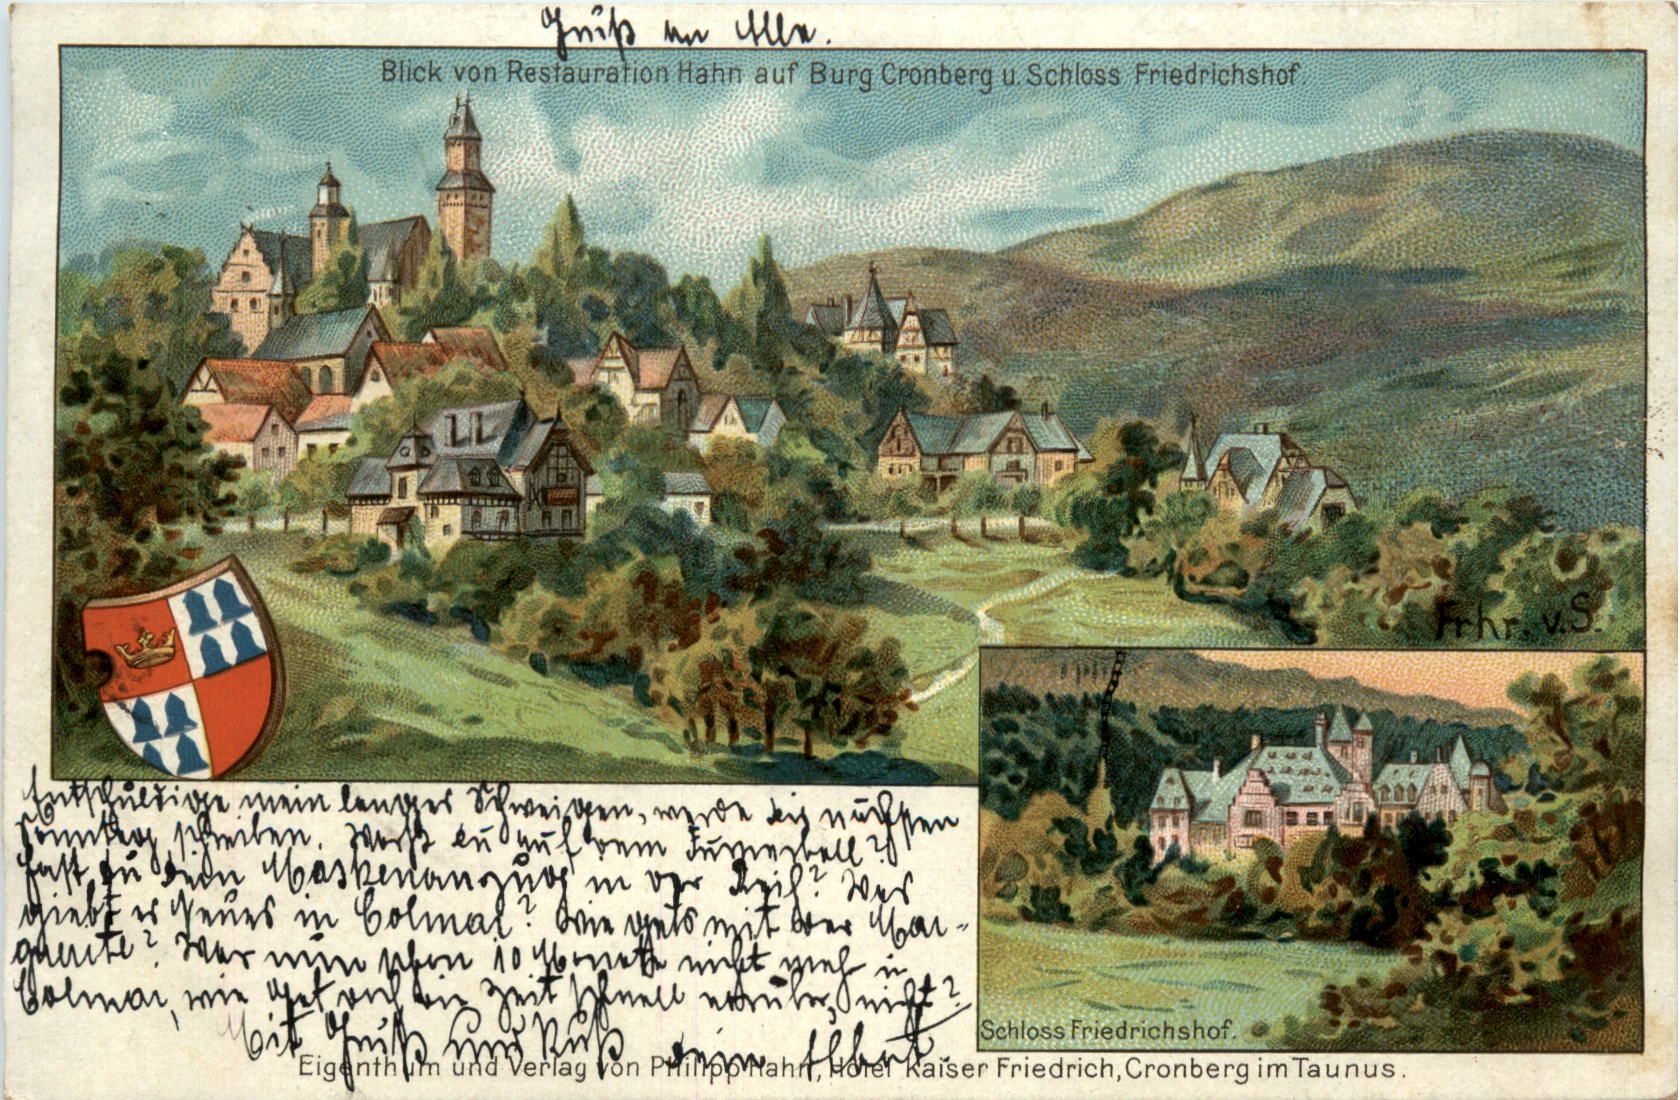 Gruß an Alle.
Blick von Restauration Hahn auf Burg Cronberg u. Schloss Friedrichshof.
Frhr. v. S.
Entschuldige mein langes Schweigen, werde dir nächsten
Sonntag schreiben. Warst du auf dem Turnerball?
Hast du dein Maskenanzug in der Reih? Was
giebt es Neues in Colmar? Wie gehts mit der Mar-
guerite? War nun schon 10 Monate nicht mehr in
Colmar, wie get doch die Zeit schnell vorüber, nicht?
Mit Gruß und Kuß dein Albert.
Schloss Friedrichshof.
Eigenthum und Verlag von Philipp Hahn, Hotel Kaiser Friedrich, Cronberg im Taunus.